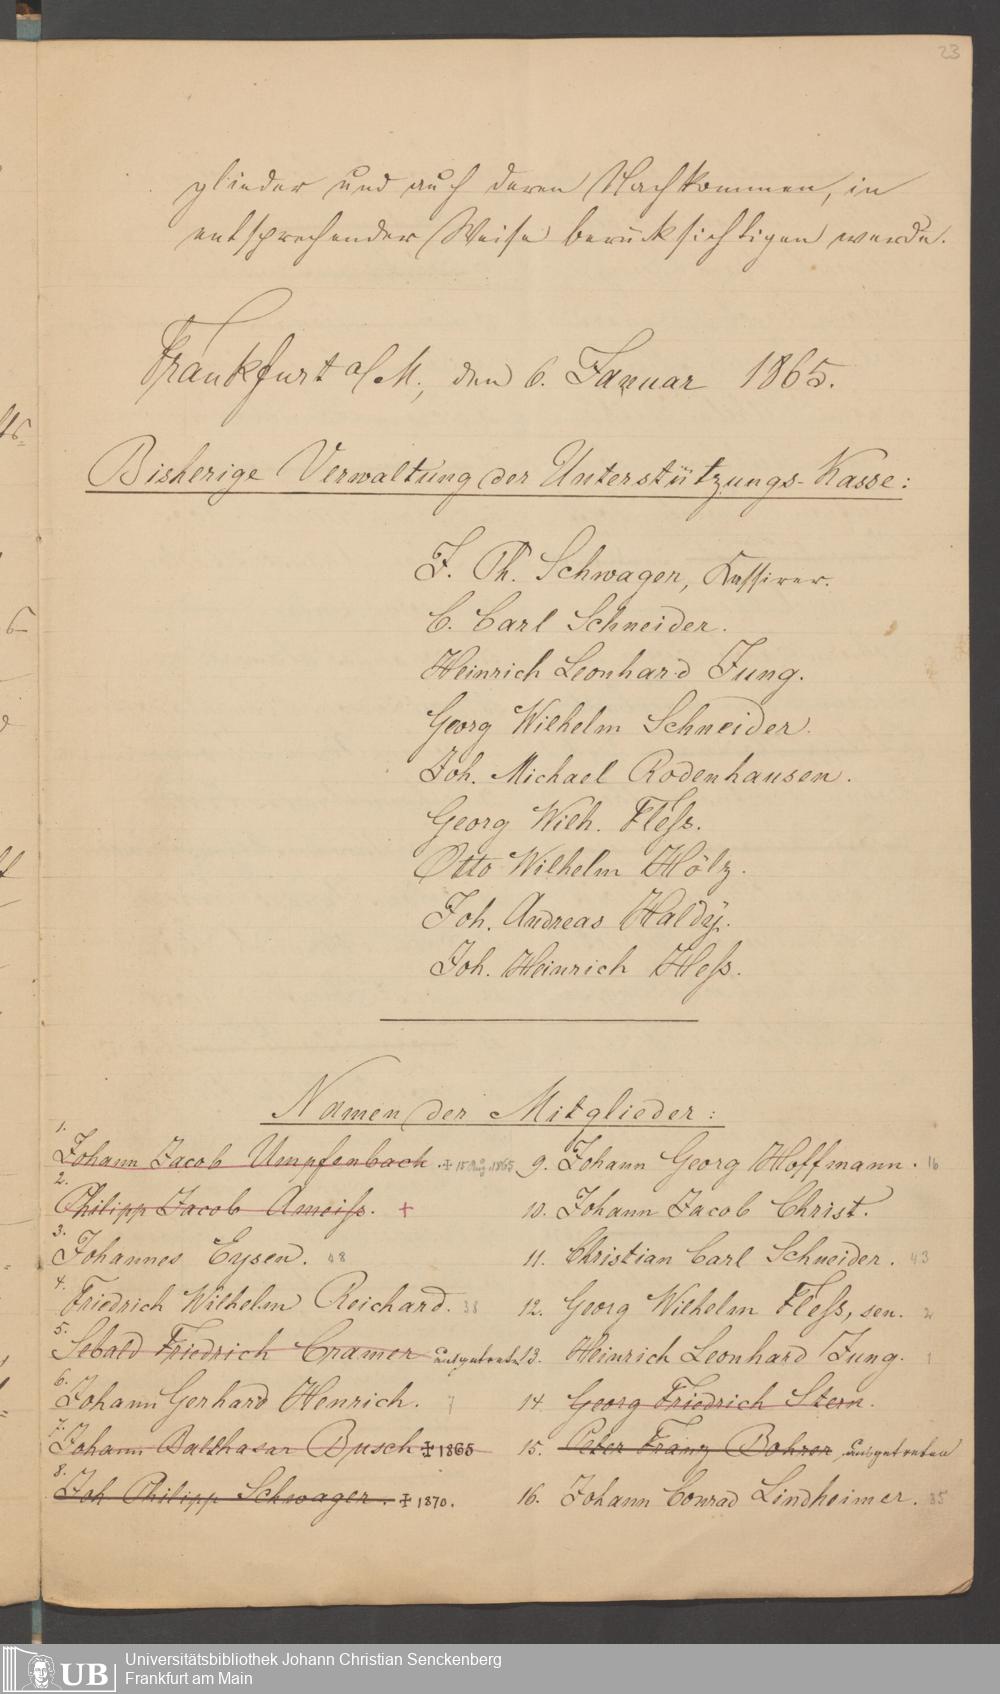 23
glieder und auch deren Nachkommen, in
entsprechender Weise berücksichtigen werde.
Frankfurt a/M., den 6. Januar 1865.
Bisherige Verwaltung der Unterstützungs-Kasse:
J. Ph. Schwager, Kassirer.
C. Carl Schneider.
Heinrich Leonhard Jung.
Georg Wilhelm Schneider.
Joh. Michael Rodenhausen.
Georg Wilh. Fleß.
Otto Wilhelm Hölz.
Joh. Andreas Haldÿ.
Joh. Heinrich Heß.
Namen der Mitglieder:
1. Johann Jacob Umpfenbach. ‡ 15 Aug. 1865
2. Philipp Jacob Ameiß. +
3. Johannes Eysen. 48
4. Friedrich Wilhelm Reichard. 38
5. Sebald Friedrich Cramer ausgetreten
6. Johann Gerhard Henrich. 7
7. Johann Balthasar Busch ‡ 1865
8. Joh Philipp Schwager. ‡ 1870.
9. Johann Georg Hoffmann. 16
10. Johann Jacob Christ.
11. Christian Carl Schneider. 43
12. Georg Wilhelm Fleß, sen. 2
13. Heinrich Leonhard Jung. 1
14. Georg Friedrich Stern.
15. Peter Franz Bohrer ausgetreten
16. Johann Conrad Lindheimer. 35
UB
Universitätsbibliothek Johann Christian Senckenberg
Frankfurt am Main